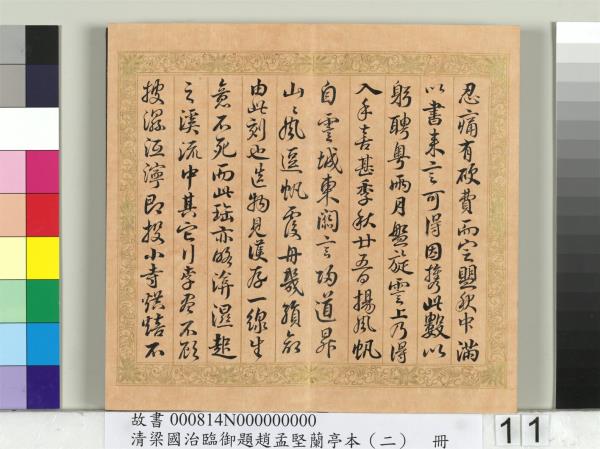 忍痛有破費而定盟秋中滿
以書來言可得因携此數以
躬聘粤兩月盤旋霅上乃得
入手喜甚季秋廿五日揚風帆
自霅城東關言歸道昇
山山風逗帆覆舟幾殞命
由此刻也造物見存一線生
意不死而此亦略濟濕起
之溪流中其它行李不顧
披濕沍濘即投小寺烘焙不
故書 000814N000000000
清梁國治臨御題趙孟堅蘭亭本（二） 冊
11